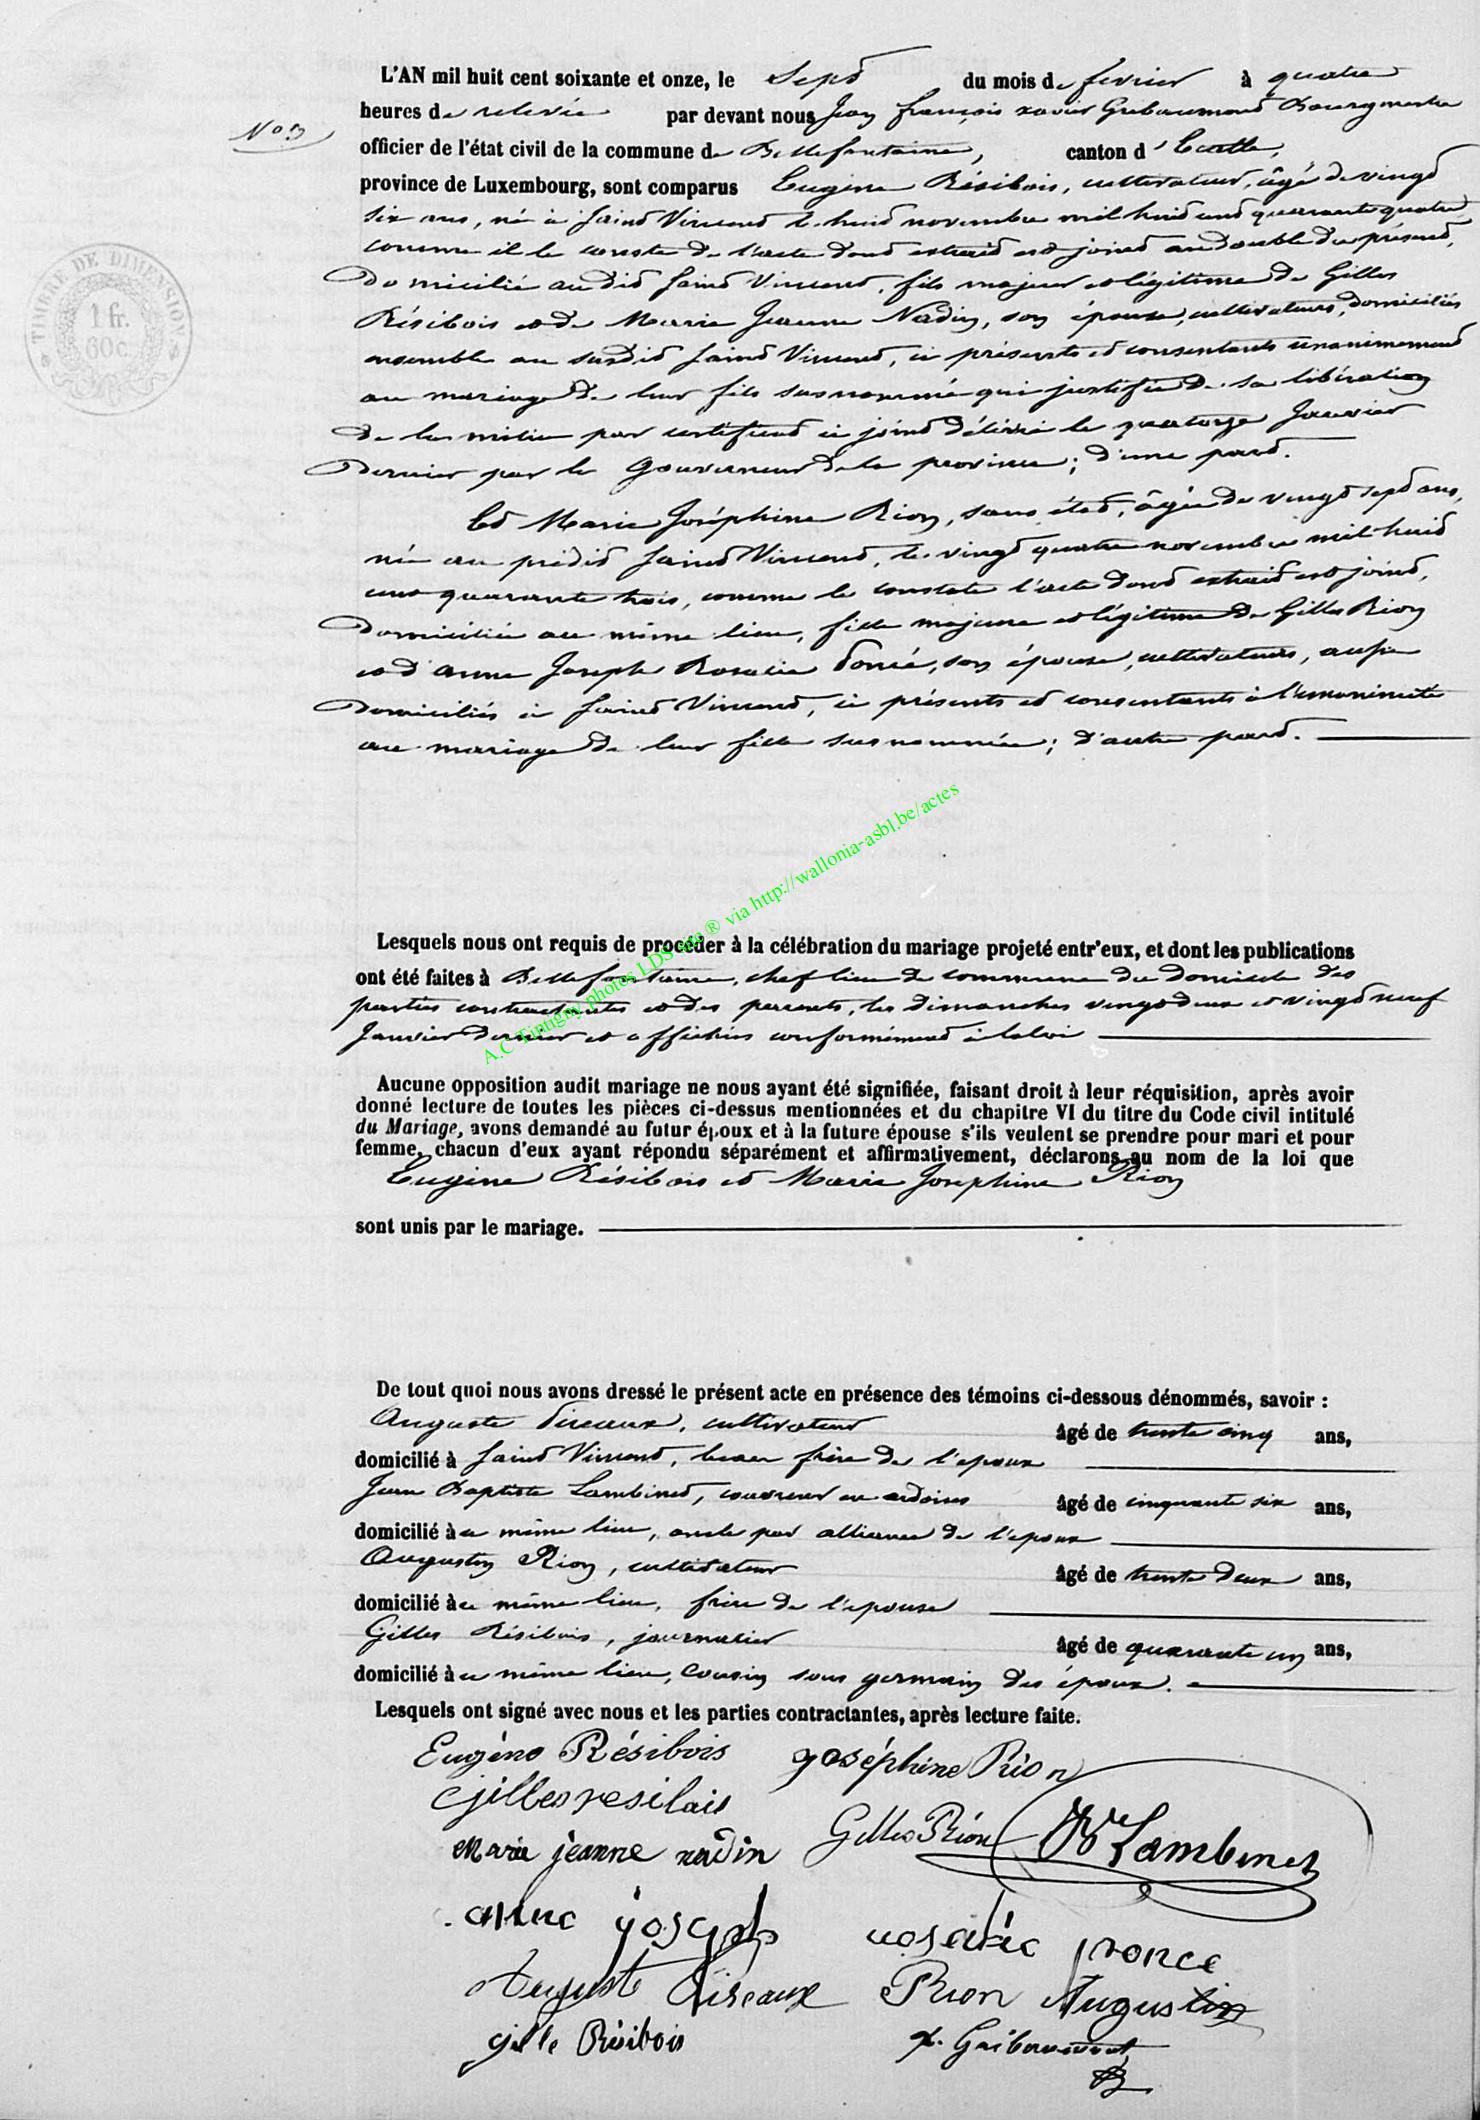 L'AN mil huit cent soixante et onze, le sept du mois de fevrier à quatre
heures de relevée par devant nous Jean françois xavier Gribaumont Bourgmestre
N° 3
officier de l'état civil de la commune de Bellefontaine, canton d'Etalle,
province de Luxembourg, sont comparus Eugène Résibois, cultivateur, âgé de vingt
six ans, né à Saint Vincent le huit novembre mil huit cent quarante quatre,
comme il le conste de l'acte dont extrait est joint au double du présent,
domicilié audit Saint Vincent, fils majeur et légitime de Gilles
Résibois et de Marie Jeanne Nadin, son épouse, cultivateurs, domiciliés
ensemble au susdit Saint Vincent, ci présents et consentants unanimement
au mariage de leur fils susnommé qui justifie de sa libération
de la milice par certificat ci joint délivré le quatorze Janvier
dernier par le Gouverneur de la province; d'une part.
Et Marie Joséphine Rion, sans état, âgée de vingt sept ans,
née au prédit Saint Vincent, le vingt quatre novembre mil huit
cent quarante trois, comme le constate l'acte dont extrait est joint,
domiciliée au même lieu, fille majeure et légitime de Gilles Rion
et d'anne Joseph Rosalie son épouse, cultivateurs, aussi
domiciliés à Saint Vincent, ci présents et consentants à l'unanimité
au mariage de leur fille susnommée; d'autre part.
TIMBRE DE DIMENSION
1 fr.
60 c.
A.C Tintigny photos LDS site ® via http://wallonia-asbl.be/actes
Lesquels nous ont requis de procéder à la célébration du mariage projeté entr'eux, et dont les publications
ont été faites à Bellefontaine, chef lieu de commune du domicile des
parties contractantes et des parents, les dimanches vingt deux et vingt neuf
Janvier dernier et affichées conformément à la loi
Aucune opposition audit mariage ne nous ayant été signifiée, faisant droit à leur réquisition, après avoir
donné lecture de toutes les pièces ci-dessus mentionnées et du chapitre VI du titre du Code civil intitulé
du Mariage, avons demandé au futur époux et à la future épouse s'ils veulent se prendre pour mari et pour
femme, chacun d'eux ayant répondu séparément et affirmativement, déclarons au nom de la loi que
Eugène Résibois et Marie Joséphine Rion
sont unis par le mariage.
De tout quoi nous avons dressé le présent acte en présence des témoins ci-dessous dénommés, savoir :
Auguste Liseaux, cultivateur âgé de trente cinq ans,
domicilié à Saint Vincent, beau frère de l'époux
Jean Baptiste Lambinet, couvreur en ardoises âgé de cinquante six ans,
domicilié à ce même lieu, oncle par alliance de l'époux
Augustin Rion, cultivateur âgé de trente deux ans,
domicilié à ce même lieu, frère de l'épouse
Gilles Résibois, journalier âgé de quarante un ans,
domicilié à ce même lieu, cousin sous germain des époux.
Lesquels ont signé avec nous et les parties contractantes, après lecture faite.
Eugène Résibois Joséphine Rion
Gilles resibais
Marie jeanne nadin Gilles Rion JB Lambinet
anne joseph rosalie ponce
Auguste Liseaux Rion Augustin
gille Résibois x. Gribaumont